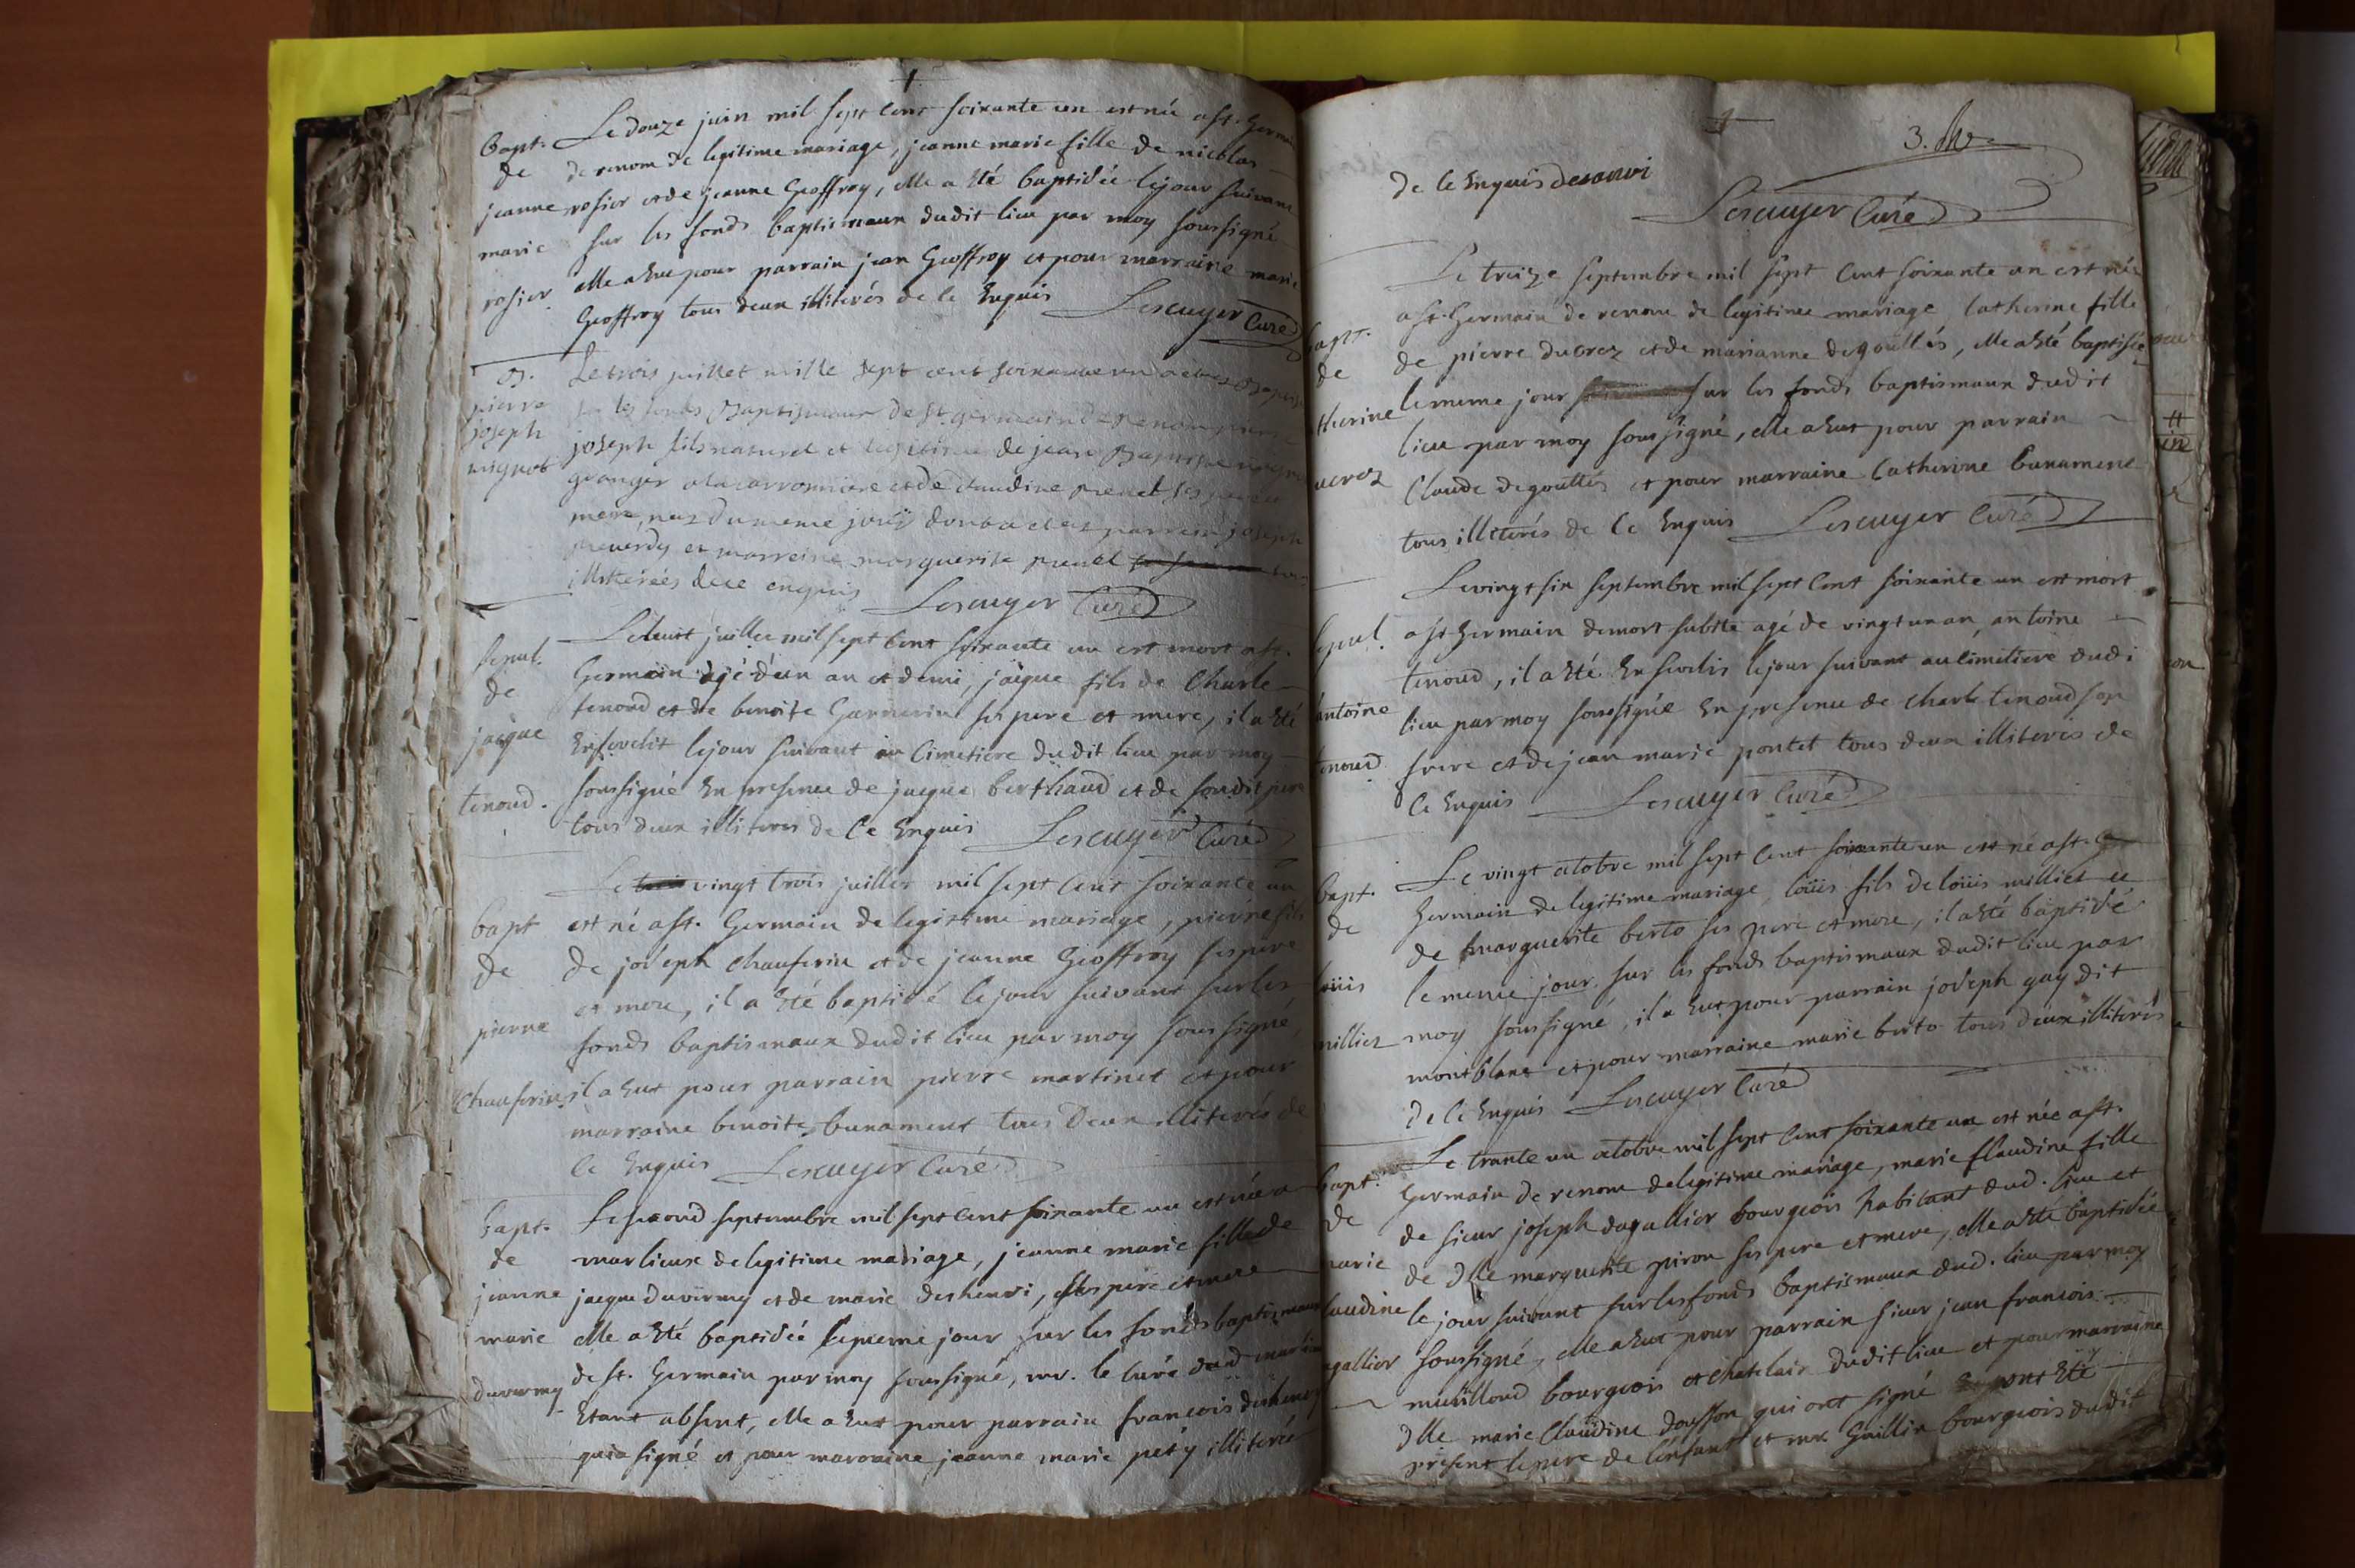 Bapt. Le douze juin mil sept cent soixante un est née a st. Germain
de de renom de legitime mariage, jeanne marie fille de nicolas
jeanne rosier et de jeanne Geoffroy, elle a été baptisée le jour suivant
marie sur les fonds baptismaux dudit lieu par moy soussigné
rosier elle a eut pour parrain jean Geoffroy et pour marraine marie
Geoffroy tous deux illiterés de ce Enquis Lescuyer Curé
B. Le trois juillet mille sept cent soixante un a été Baptisé
pierre sur les fonds Baptismaux de st. germain de renom pierre
joseph joseph fils naturel et legitime de jean Baptiste mignot
mignot granger a la carronniere et de Claudine prevel ses pere et
mere, nez du meme jour dont a été parrein joseph
et marreine marguerite prevel
illitterées de ce enquis Lescuyer Curé
Le huit juillet mil sept cent soixante un est mort a st.
sepul. Germain agé d'un an et demi, jacque fils de Charle
de tenoud et de benoite Garnerin ses pere et mere, il a été
jacque Ensevelit le jour suivant au Cimetiere dudit lieu par moy
tenoud. soussigné En presence de jacque berthaud et de soudit pere
tous deux illiteres de Ce Enquis Lescuyer Curé
Le vingt trois juillet mil sept cent soixante un
bapt est né a st. Germain de legitime mariage, pierre fils
de de joseph Chauferin et de jeanne Geoffroy ses pere
et mere, il a été baptisé le jour suivant sur les
pierre fonds baptismaux dudit lieu par moy soussigné,
Chauferin il a eut pour parrain pierre martinet et pour
marraine benoite bunament tous Deux illiterés de
Ce Enquis Lescuyer Curé
bapt. Le second septembre mil sept cent soixante un est née a
de marlieux de legitime mariage, jeanne marie fille de
jeanne jacque duvurmy et de marie deshenri, ses pere et mere
marie elle a été baptisée le meme jour sur les fonds baptismaux
duvurmy de st. Germain par moy soussigné, mr. le Curé dud marlieux
Etant absent, elle a eut pour parrain francois deshenry
qui a signé et pour marraine jeanne marie pety illiterée
3.
de ce Enquis desanvi
Lescuyer Curé
Le treize septembre mil sept cent soixante un est née
a st. Germain de renom de legitime mariage, Catherine fille
bapt. de pierre ducroz et de marianne degouttés, elle a été baptisée
de le meme jour sur les fonds baptismaux dudit
therine lieu par moy soussigné, elle a eut pour parrain
ucroz Claude degouttés et pour marraine Catherine bunament
tous illiterés de Ce Enquis Lescuyer Curé
Le vingt six septembre mil sept cent soixante un est mort
sepul. a st Germain de mort subite agé de vingt un an, antoine
tenoud, il a été Ensevelis le jour suivant au Cimetiere dudi
antoine lieu par moy soussigné En presence de Charle tenoud son
tenoud frere et de jean marie pontet tous deux illiterés de
Ce Enquis Lescuyer Curé
Le vingt octobre mil sept cent soixante un est né a st.
bapt. Germain de legitime mariage, loüis fils de loüis milliet et
de de marguerite berto ses pere et mere, il a été baptisé
loüis le meme jour sur les fonds baptismaux dudit lieu par
milliet moy soussigné, il a eut pour parrain joseph guy dit
montblant et pour marraine marie berto tous deux illiterés
de Ce Enquis Lescuyer Curé
Le trante un octobre mil sept cent soixante un est née a st.
bapt. Germain de renom de legitime mariage, marie Claudine fille
de de sieur joseph dagallier bourgeois habitant dud. lieu et
marie de dlle marguerite piron ses pere et mere, elle a été baptisée
laudine le jour suivant sur les fonds baptismaux dud. lieu par moy
agallier soussigné, elle a eut pour parrain sieur jean francois
muilloud bourgeois et Chatelain dudit lieu et pour marraine
dlle marie Claudine qui ont signé ont Eté
present le pere de l'enfant et mr. Guillin bourgeois dudit